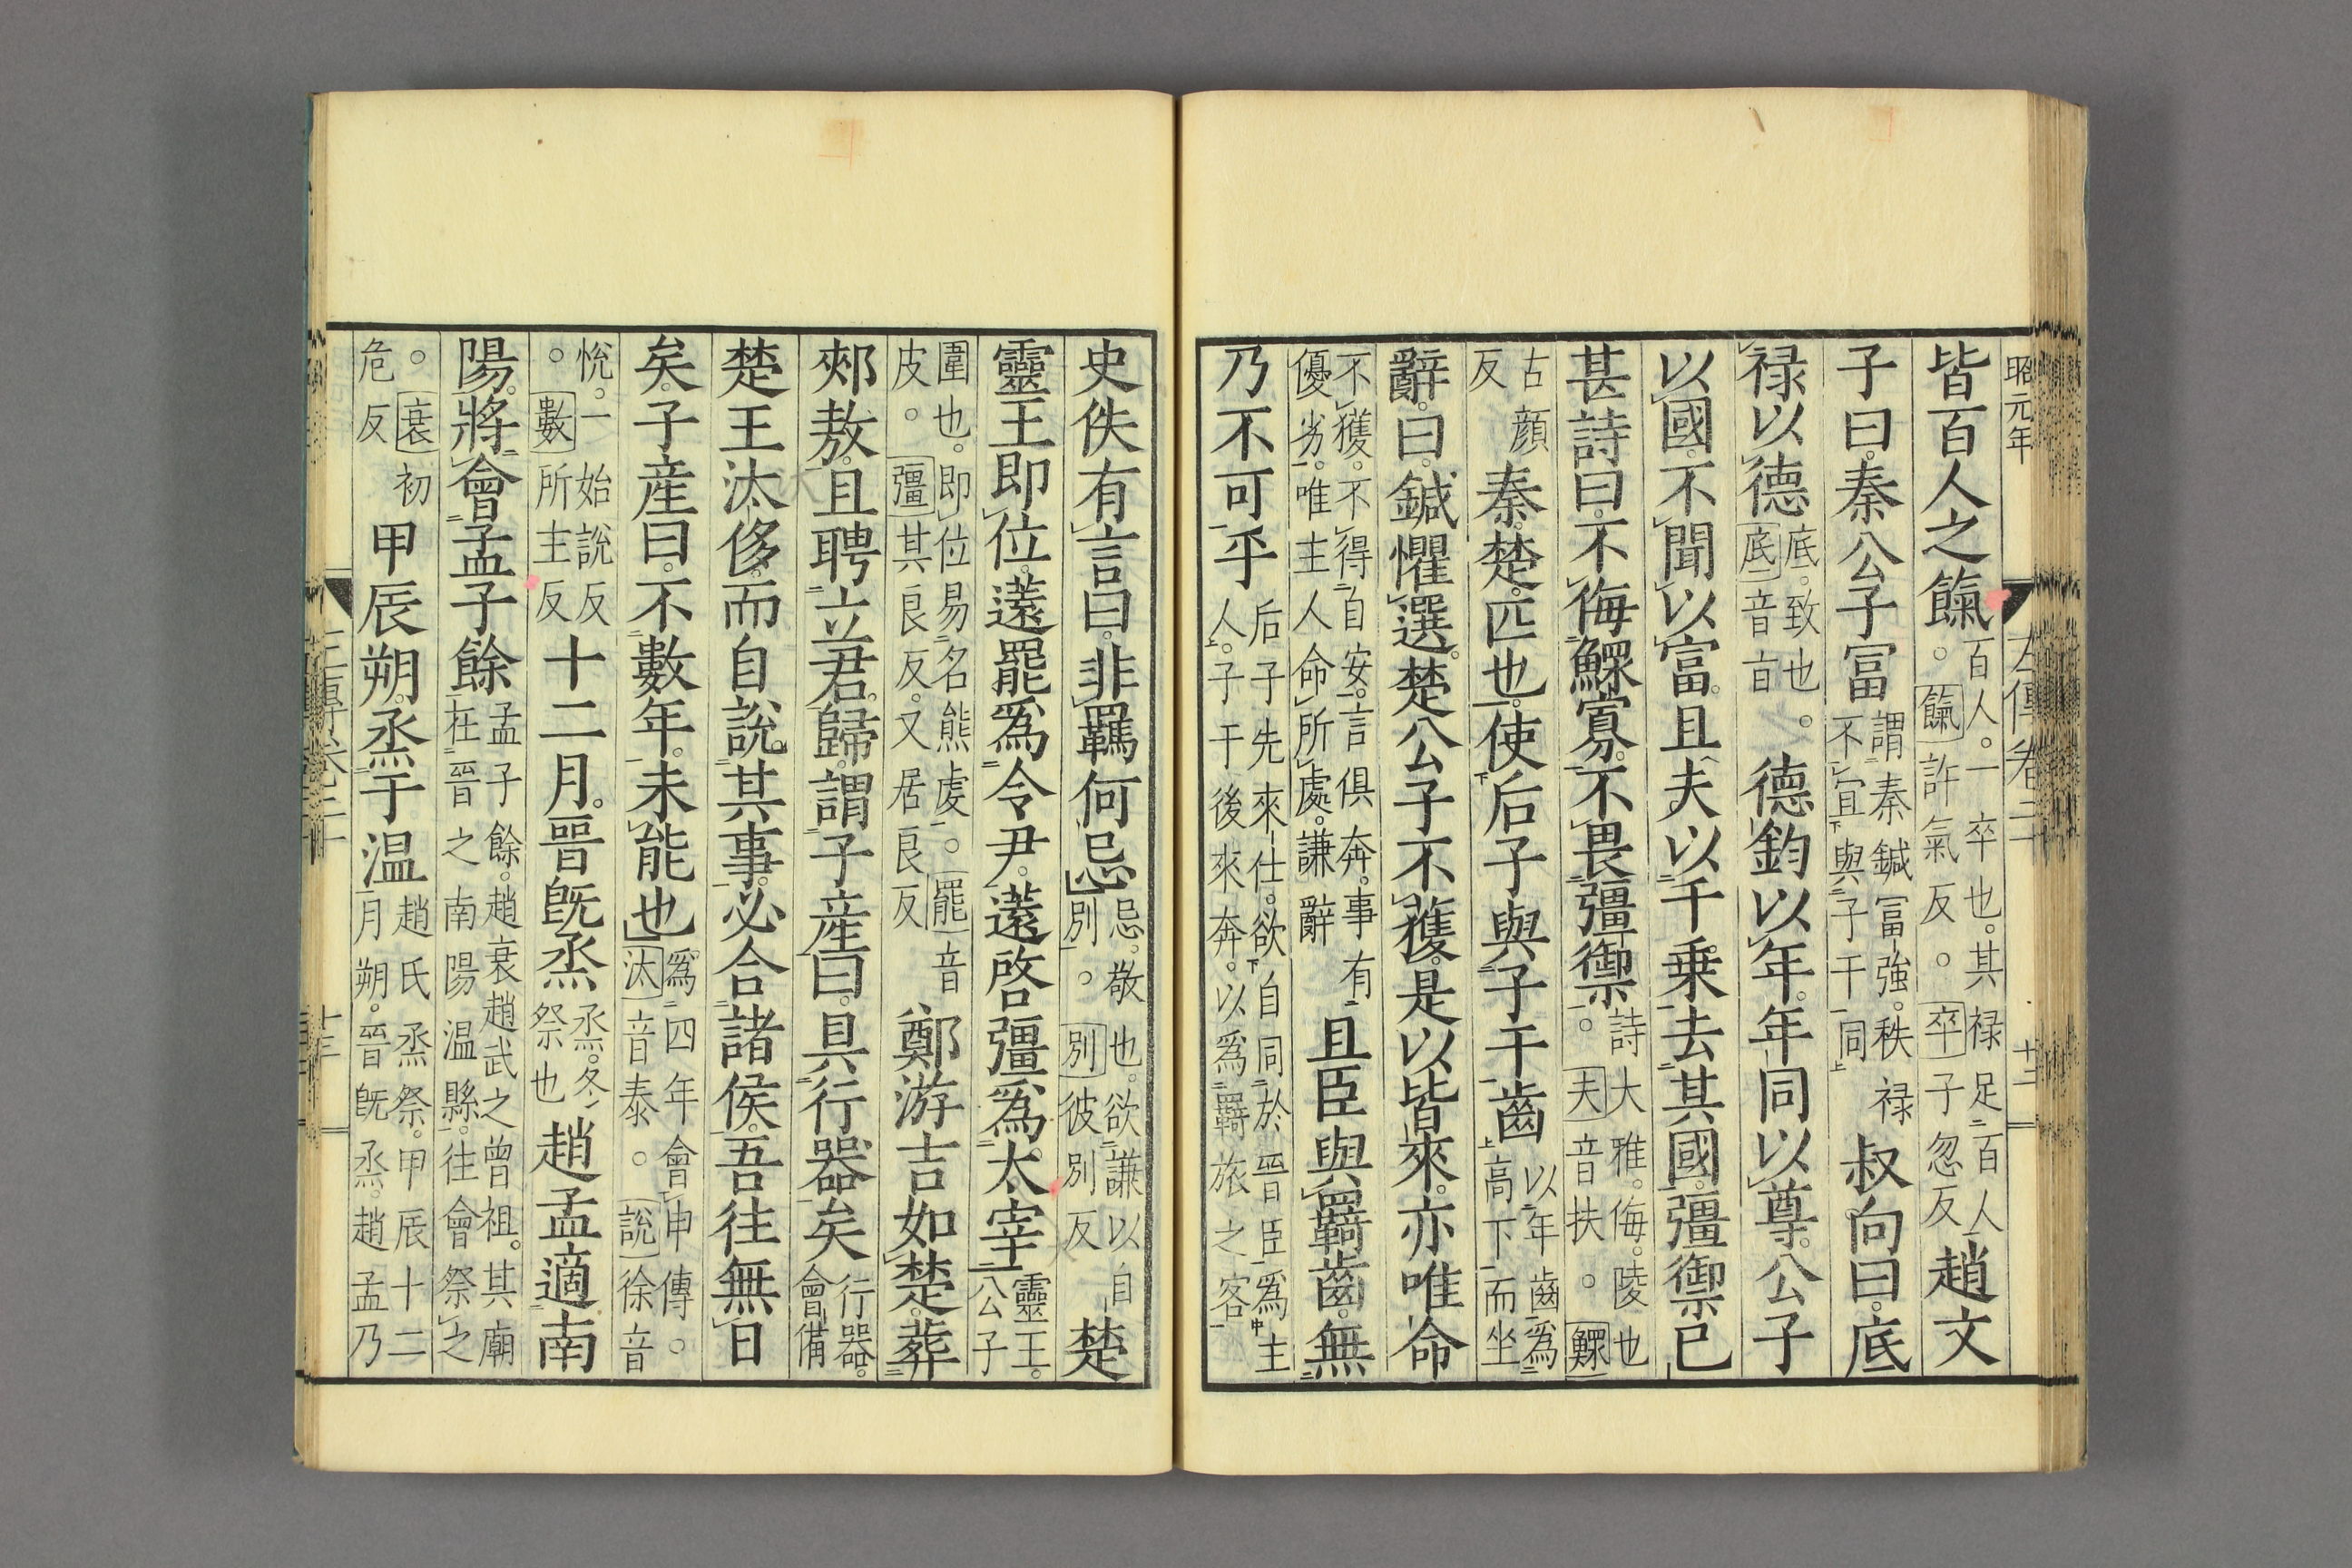 昭元年
左傳卷二十
十二
皆百人之餼百人。一卒也。其祿足百人。餼許氣反。卒子忽反趙文
子曰。秦公子富謂秦鍼富強。秩祿不宜與子干同叔向曰。底
祿以德底。致也。底音旨德鈞以年。年同以尊。公子
以國。不聞以富。且夫以千乗去其國。彊禦已
甚詩曰。不侮鰥寡。不畏彊禦詩大雅。侮。陵也。夫音扶。鰥
古頑反秦。楚。匹也。使后子與子干齒以年齒爲高下而坐
辭。曰。鍼懼選。楚公子不獲。是以皆來。亦唯命
不獲。不得自安。言俱奔。事有優劣。唯主人命所處。謙辭且臣與羇齒。無
乃不可乎后子先來仕。欲自同於晉臣爲主人。子干後來奔。以爲羇旅之客
史佚有言曰。非羈何忌忌。敬也。欲謙以自別。別彼別反楚
靈王即位。薳罷爲令尹。薳啓彊爲太宰靈王。公子
圍也。即位易名熊虔。罷音皮。彊其良反。又居良反鄭游吉如楚。葬
郟敖。且聘立君。歸。謂子産曰。具行器矣行器。會備
楚王汰侈。而自說其事。必合諸侯。吾往無日
矣。子産曰。不數年。未能也爲四年會申傳。汰音泰。說徐音
悅。一始說反。數所主反十二月。晉旣烝烝。冬祭也趙孟適南
陽。將會孟子餘孟子餘。趙衰。趙武之曾祖。其廟在晉之南陽温縣。往會祭之
。衰初危反甲辰朔。烝于温趙氏烝祭。甲辰十二月朔。晉旣烝。趙孟乃